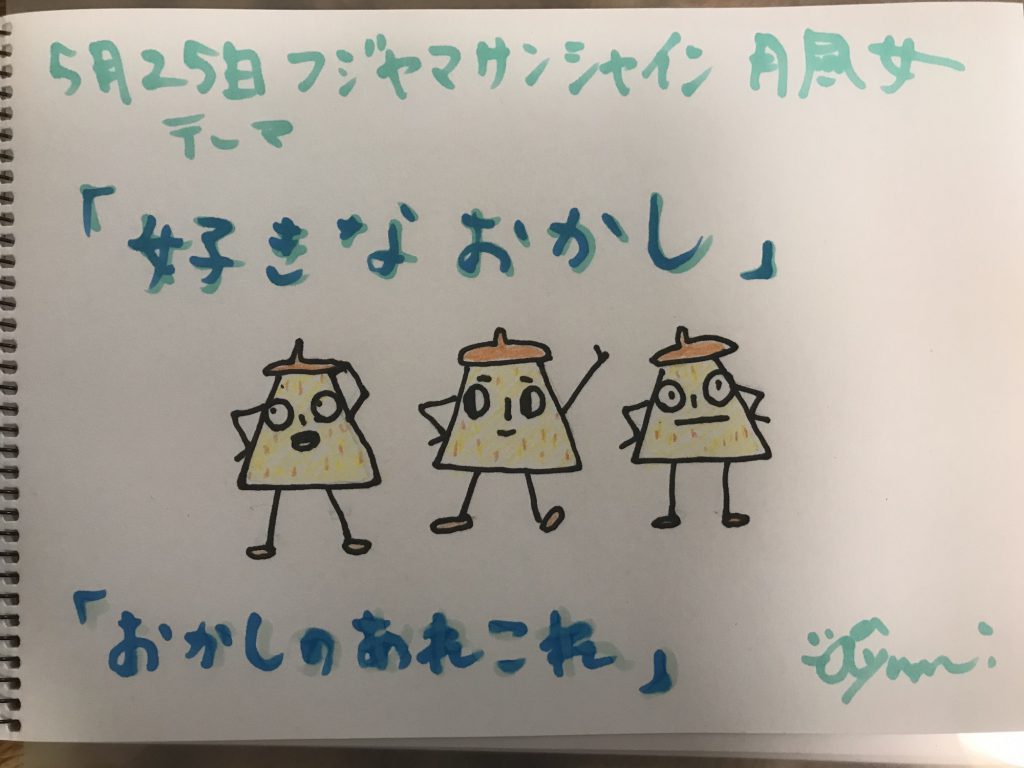 5月25日 フジヤマサンシャイン 月風女
テーマ
「好きな おかし」
「おかしのあれこれ」